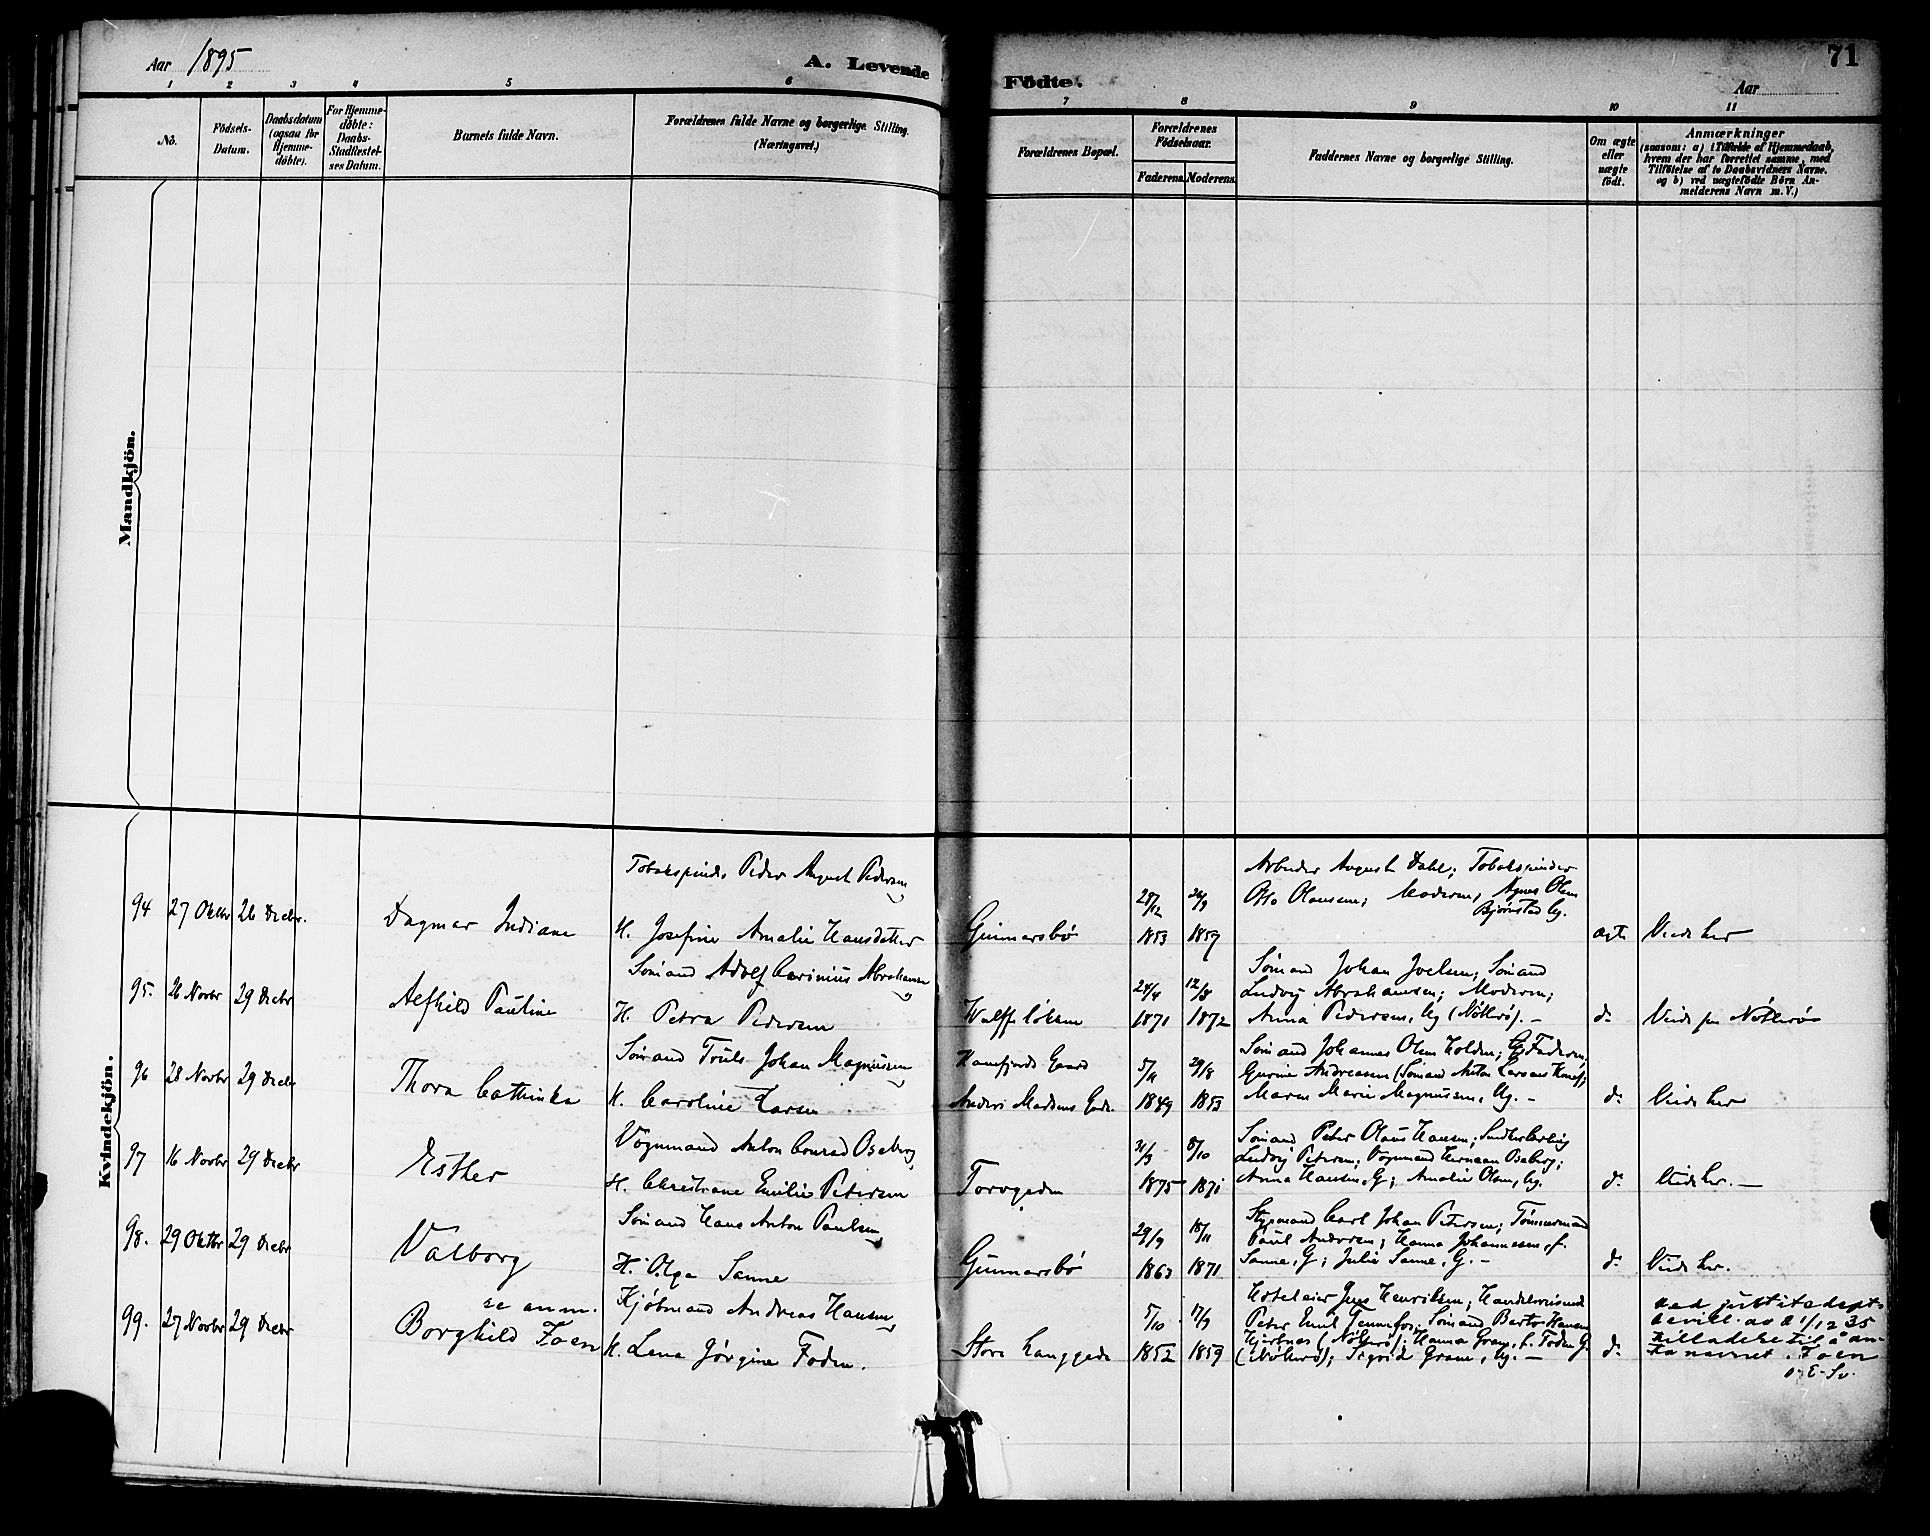 Aar 1895
A. Levende
Födte.
Aar
71
1 2 3 4 5 6 7 8 9 10 11
No.
Födsels-
Datum.
Daabsdatum
(ogsaa for
Hjemme-
döbte).
For Hjemme-
döbte:
Daabs-
Stadfæstel-
ses Datum.
Barnets fulde Navn.
Forældrenes fulde Navne og borgerlige Stilling.
(Næringsvei.)
Forældrenes Bopæl.
Forældrenes
Födselsaar.
Faderens.
Moderens.
Faddernes Navne og borgerlige Stilling.
Om ægte
eller
uægte
født.
Anmærkninger
(saasom: a) i Tilfælde af Hjemmedaab,
hvem der har forrettet samme, med
Tilföielse af to Daabsvidners Navne.
og b) ved uægtefödte Börn An-
melderens Navn m.V.)
Mandkjön.
Kvindekjön.
94
27 Oktbr
26 Decbr.
Dagmar Indiane
Tobakspind. Peder August Pedersen
H. Josefine Amalie Hansdatter
Gunnarsbö
28/12
1853
1857
Arbeider August Dahl; Tobakspinder
Otto Olausen; Moderen; Agnes Olsen
Bjørnstad Ug.
ægte
Viede her
95.
26 Novbr
29 Decbr
Alfhild Pauline
Sömand Adolf Carinius Abrahamsen
H. Petra Pedersen
24/4
1871
12/8
1872
Sömand Johan Joelsen; Sömand
Ludvig Abrahamsen; Moderen;
Anna Pedersen, Ug (Nötterö). -
d.
Viede paa Nötterö
96
28 Novbr
29 Decbr
Thora Cathinka
Sömand Truls Johan Magnussen
H. Caroline Larsen
Anders Madsens Gade.
1849
29/8
1853
Sömand Johannes Olsen Holden; Faderen;
Gurine Andreasen (Sömand Anton Larsens Kone);
Maren Marie Magnussen, Ug. -
d.
Viede her
97
16 Novbr
29 Decbr
Esther
Vognmand Anton Conrad Oseberg
H. Christiane Emilie Petersen
Torvgaden
1875
8/10
1871
Sömand Peter Olaus Hansen;
Ludvig Petersen; Vognmand Herman Oseberg;
Anna Hansen, G; Amalie Olsen, Ug.
d.
Viede her. -
98.
29 Oktbr
29 Decbr
Valborg
Sömand Hans Anton Paulsen
H. Olga Sanne
Gunnarsbö
29/9
1863
18/11
1871
Styrmand Carl Johan Petersen; Tømmermand
Paul Andersen; Hanna Johannesen, f.
Sanne, G; Julie Sanne, G. -
d.
Viede her.
99.
27 Novbr
29 Decbr
se anm.
Borghild Foen
Kjöbmand Andreas Hansen
H. Lena Jörgine Foden.
Store Langgade
5/10
1852
17/9
1859
Hoteleier Jens Henriksen; Handelsreisende
Peter Emil Sömand Hansen
(Nötterö); Hanna Gram, f. Foden G.
(Nötterö); Sigrid Gram, Ug. -
d.
Ved justitsdepts
bevill. av 2 1/12 35
tilladelse til å an-
ta navnet Foen